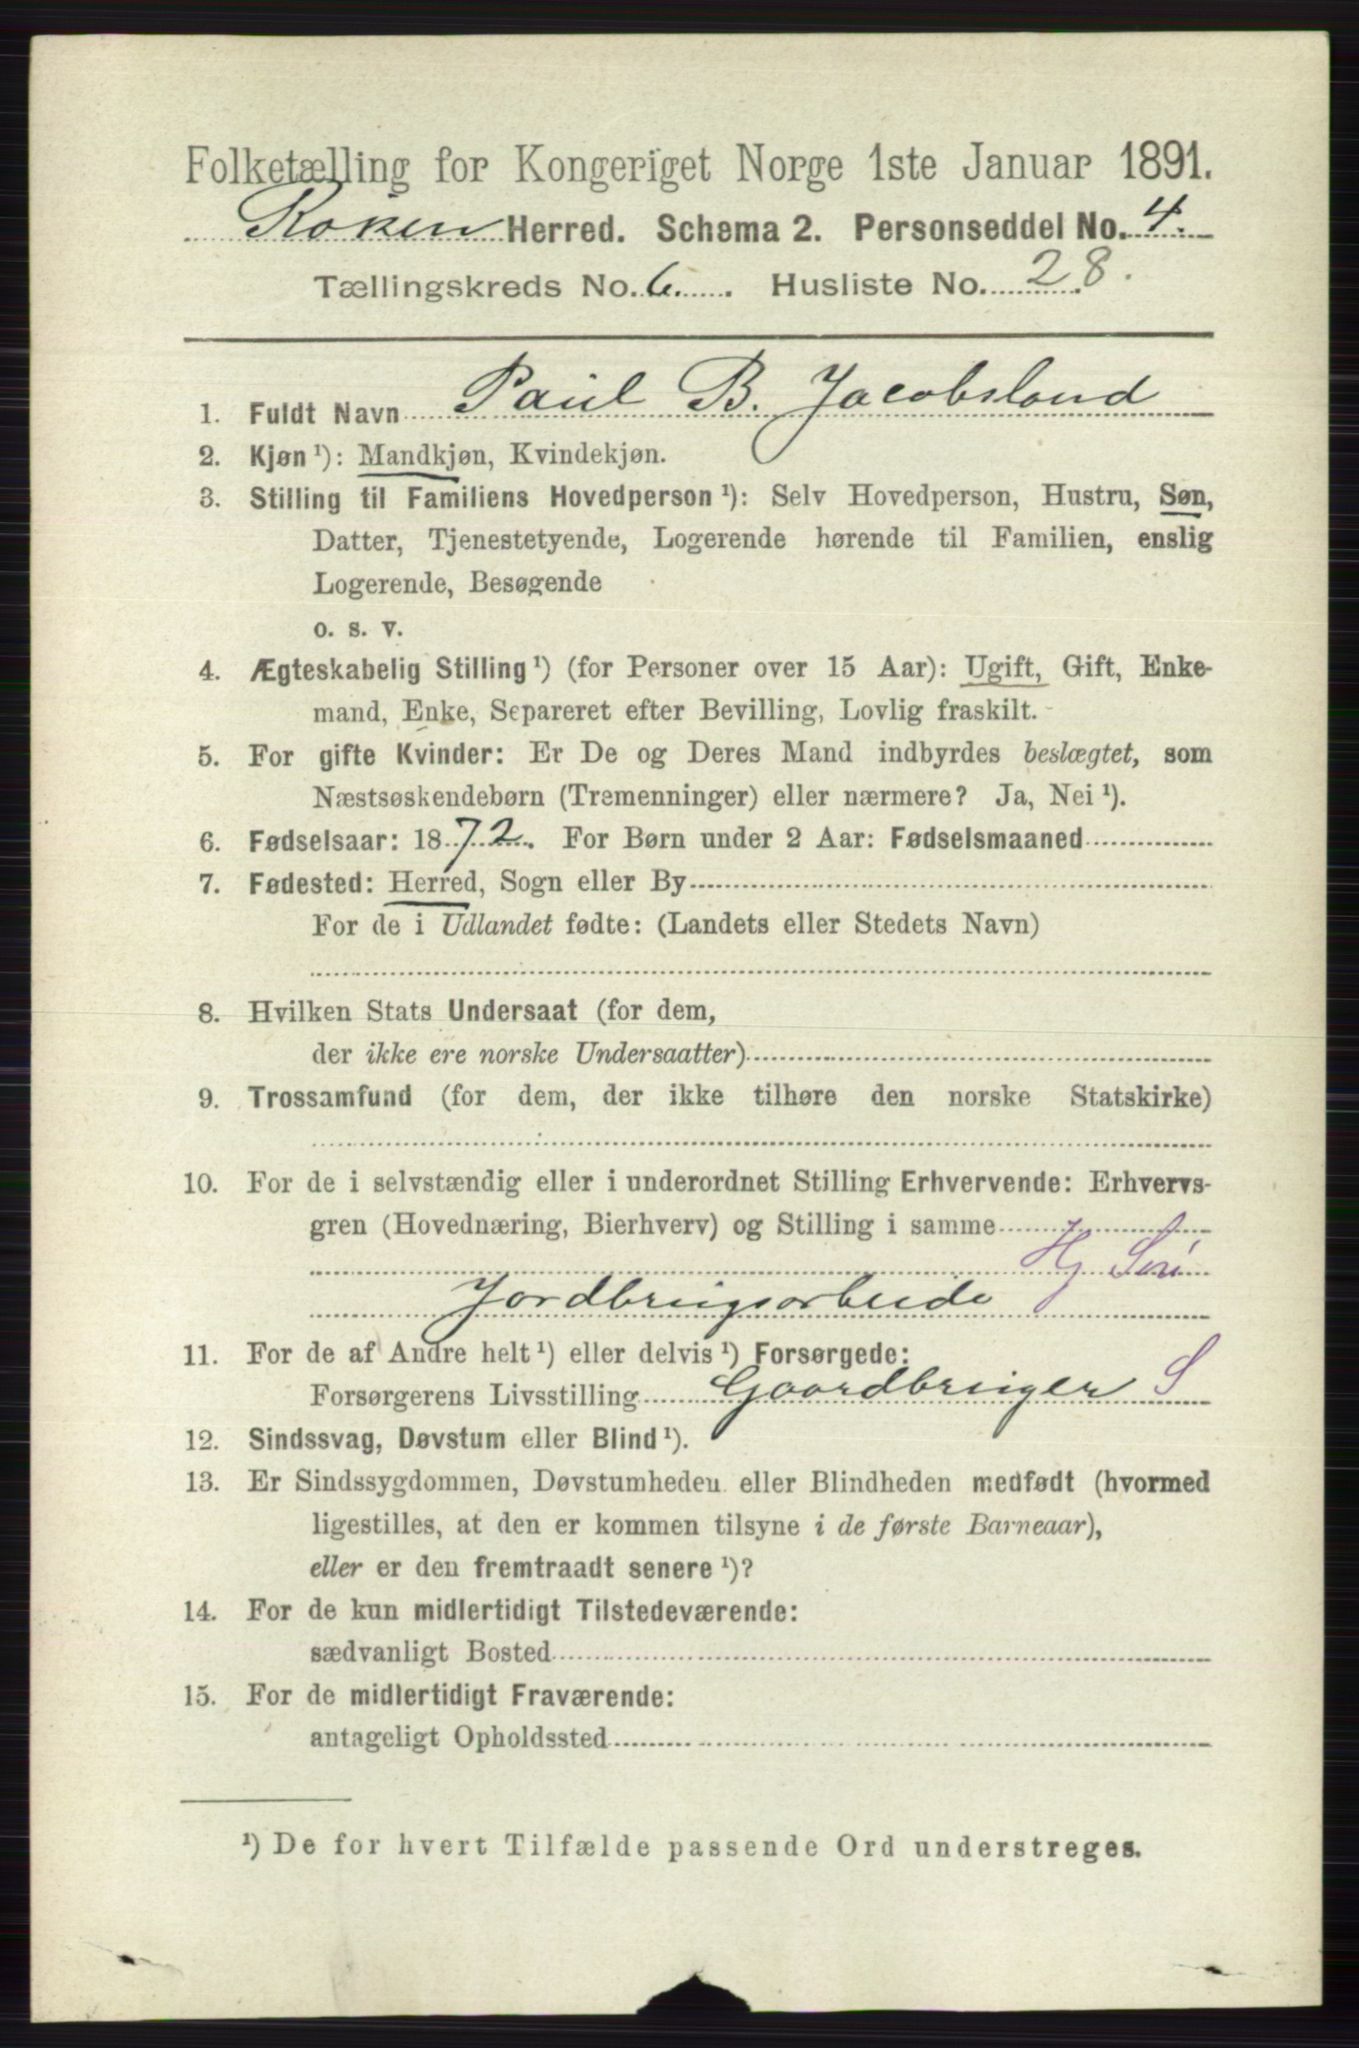 Folketælling for Kongeriget Norge 1ste Januar 1891.
Röken Herred. Schema 2. Personseddel No. 4.
Tællingskreds No. 6. Husliste No. 28.
1. Fuldt Navn Paul B. Jacobsland
2. Kjøn ¹): Mandkjøn, Kvindekjøn.
3. Stilling til Familiens Hovedperson ¹): Selv Hovedperson, Hustru, Søn,
Datter, Tjenestetyende, Logerende hørende til Familien, enslig
Logerende, Besøgende
o. s. v.
4. Ægteskabelig Stilling ¹) (for Personer over 15 Aar): Ugift, Gift, Enke-
mand, Enke, Separeret efter Bevilling, Lovlig fraskilt.
5. For gifte Kvinder: Er De og Deres Mand indbyrdes beslægtet, som
Næstsøskendebørn (Tremenninger) eller nærmere? Ja, Nei ¹).
6. Fødselsaar: 1872. For Børn under 2 Aar: Fødselsmaaned
7. Fødested: Herred, Sogn eller By
For de i Udlandet fødte: (Landets eller Stedets Navn)
8. Hvilken Stats Undersaat (for dem,
der ikke ere norske Undersaatter)
9. Trossamfund (for dem, der ikke tilhøre den norske Statskirke)
10. For de i selvstændig eller i underordnet Stilling Erhvervende: Erhvervs-
gren (Hovednæring, Bierhverv) og Stilling i samme
Hj
Jordbrugsarbeide
11. For de af Andre helt ¹) eller delvis ¹) Forsørgede:
Forsørgerens Livsstilling Gaardbruger S
12. Sindssvag, Døvstum eller Blind ¹).
13. Er Sindssygdommen, Døvstumheden eller Blindheden medfødt (hvormed
ligestilles, at den er kommen tilsyne i de første Barneaar),
eller er den fremtraadt senere ¹)?
14. For de kun midlertidigt Tilstedeværende:
sædvanligt Bosted
15. For de midlertidigt Fraværende:
antageligt Opholdssted
¹) De for hvert Tilfælde passende Ord understreges.